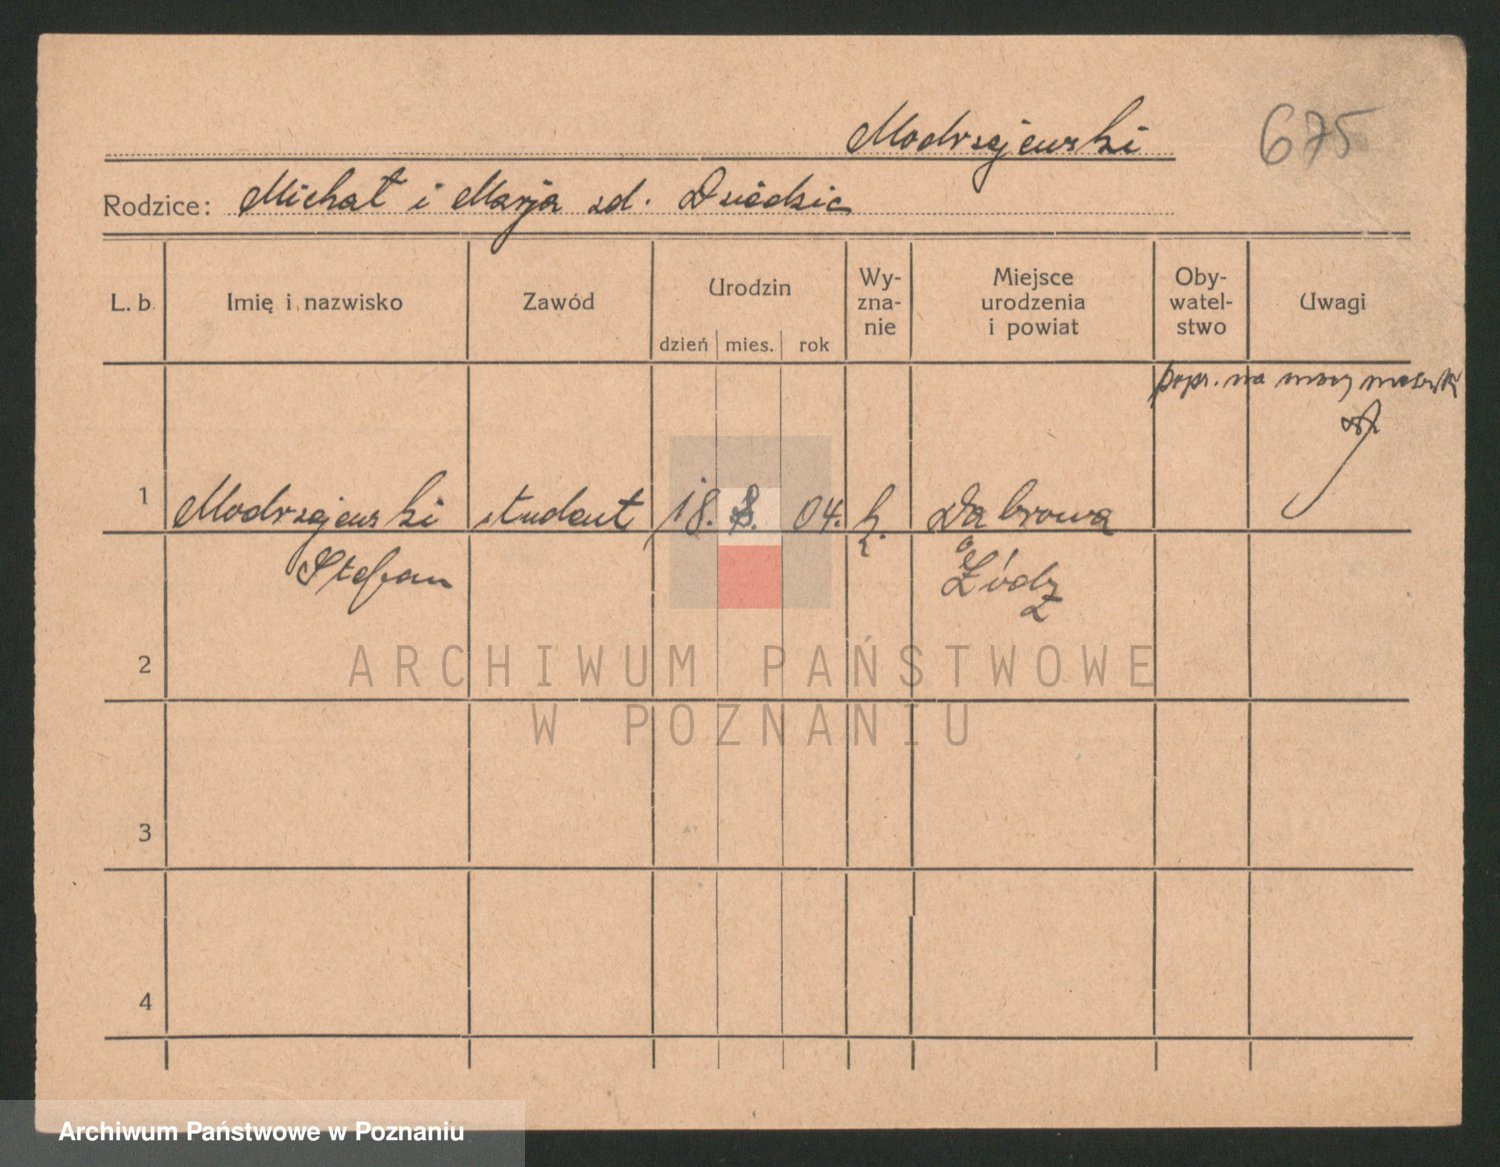 Modrzejewski 675
Rodzice: Michał i Marja zd. Dziedzic
L. b. Imię i nazwisko Zawód Urodzin dzień mies. rok Wy-zna-nie Miejsce urodzenia i powiat Oby-watel-stwo Uwagi
popr. na mocy
1 Modrzejewski student 18. 8. 04. k. Dąbrowa
Stefan Łódź
2
3
4
ARCHIWUM PAŃSTWOWE
W POZNANIU
Archiwum Państwowe w Poznaniu